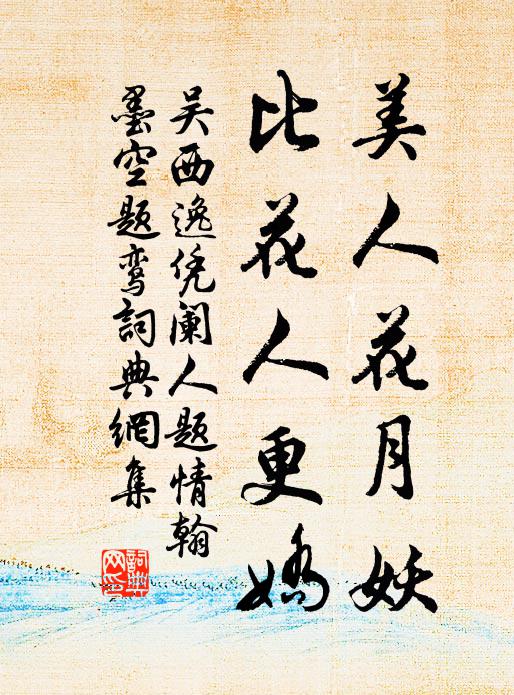 美人花月妖
比花人更嬌
吴西逸凭阑人题情翰
墨空题鸾詞典網集